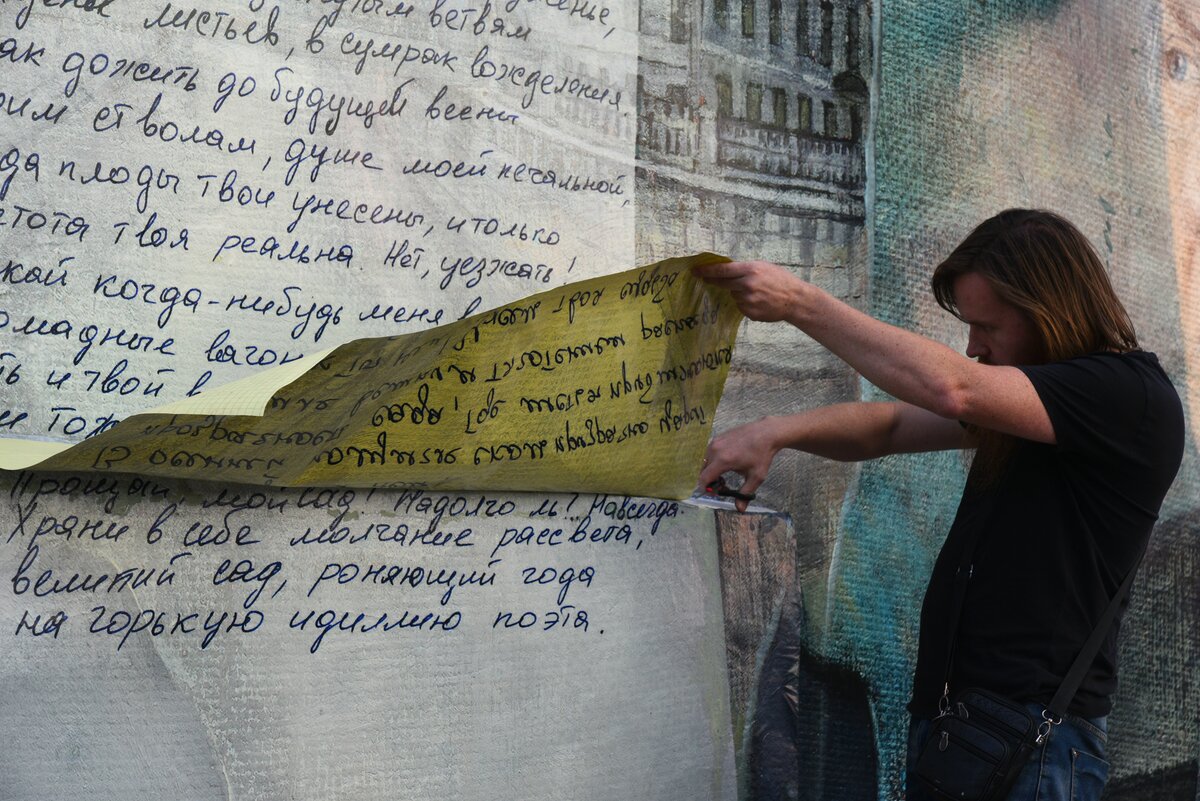 женье,
утым ветвям
денье листьев, в сумрак вожделения.
ак дожить до будущей весны
оим стволам, душе моей печальной,
да плоды твои унесены, и только
стота твоя реальна. Нет, уезжать!
скай когда-нибудь меня в
омадные вагон
ть и твой в
и тож
Прощай, мой сад! Надолго ль?.. Навсегда.
Храни в себе молчание рассвета,
великий сад, роняющий года
на горькую идиллию поэта.